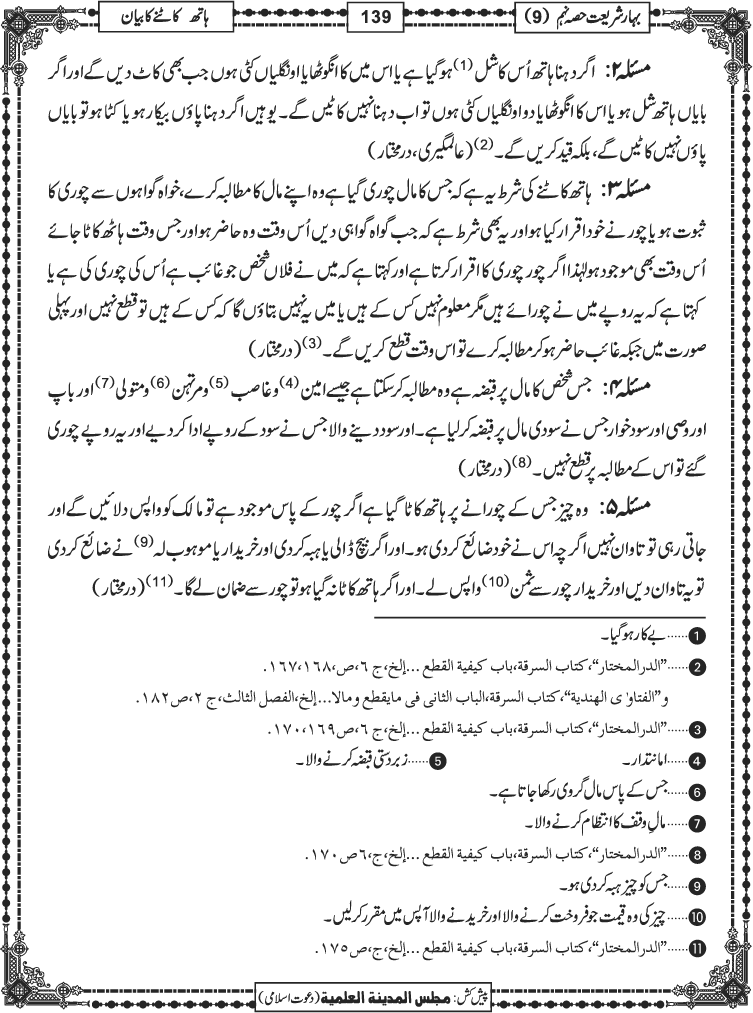 بہارِ شریعت حصہ نہم (9)
139
ہاتھ کاٹنے کا بیان
مسئلہ ۲: اگر دہنا ہاتھ اُس کا شل (1) ہوگیا ہے یا اس میں کا انگوٹھا یا اونگلیاں کٹی ہوں جب بھی کاٹ دیں گے اور اگر
بایاں ہاتھ شل ہو یا اس کا انگوٹھا یا دو اونگلیاں کٹی ہوں تو اب دہنا نہیں کاٹیں گے۔ یوہیں اگر دہنا پاؤں بیکار ہو یا کٹا ہو تو بایاں
پاؤں نہیں کاٹیں گے، بلکہ قید کریں گے۔ (2) (عالمگیری، درمختار)
مسئلہ ۳: ہاتھ کاٹنے کی شرط یہ ہے کہ جس کا مال چوری گیا ہے وہ اپنے مال کا مطالبہ کرے، خواہ گواہوں سے چوری کا
ثبوت ہو یا چور نے خود اقرار کیا ہو اور یہ بھی شرط ہے کہ جب گواہ گواہی دیں اُس وقت وہ حاضر ہو اور جس وقت ہاتھ کاٹا جائے
اُس وقت بھی موجود ہو لہٰذا اگر چور چوری کا اقرار کرتا ہے اور کہتا ہے کہ میں نے فلاں شخص جو غائب ہے اُس کی چوری کی ہے یا
کہتا ہے کہ یہ روپے میں نے چورائے ہیں مگر معلوم نہیں کس کے ہیں یا میں یہ نہیں بتاؤں گا کہ کس کے ہیں تو قطع نہیں اور پہلی
صورت میں جبکہ غائب حاضر ہو کر مطالبہ کرے تو اس وقت قطع کریں گے۔ (3) (درمختار)
مسئلہ ۴: جس شخص کا مال پر قبضہ ہے وہ مطالبہ کر سکتا ہے جیسے امین (4) و غاصب (5) و مرتہن (6) و متولی (7) اور باپ
اور وصی اور سود خوار جس نے سودی مال پر قبضہ کر لیا ہے۔ اور سود دینے والا جس نے سود کے روپے ادا کر دیے اور یہ روپے چوری
گئے تو اس کے مطالبہ پر قطع نہیں۔ (8) (درمختار)
مسئلہ ۵: وہ چیز جس کے چورانے پر ہاتھ کاٹا گیا ہے اگر چور کے پاس موجود ہے تو مالک کو واپس دلائیں گے اور
جاتی رہی تو تاوان نہیں اگرچہ اس نے خود ضائع کر دی ہو۔ اور اگر بیچ ڈالی یا ہبہ کر دی اور خریدار یا موہوب لہ (9) نے ضائع کر دی
تو یہ تاوان دیں اور خریدار چور سے ثمن (10) واپس لے۔ اور اگر ہاتھ کاٹا نہ گیا ہو تو چور سے ضمان لے گا۔ (11) (درمختار)
1 ......بے کار ہوگیا۔
2 ......"الدرالمختار"، کتاب السرقة، باب کیفیة القطع ...إلخ، ج ٦، ص، ١٦٧،١٦٨.
و"الفتاوٰی الهندیة"، کتاب السرقة، الباب الثانی فی مایقطع ومالا...إلخ، الفصل الثالث، ج ٢، ص ١٨٢.
3 ......"الدرالمختار"، کتاب السرقة، باب کیفیة القطع ...إلخ، ج ٦، ص ١٦٩،١٧٠.
4 ......امانتدار۔ 5 ......زبردستی قبضہ کرنے والا۔
6 ......جس کے پاس مال گروی رکھا جاتا ہے۔
7 ......مالِ وقف کا انتظام کرنے والا۔
8 ......"الدرالمختار"، کتاب السرقة، باب کیفیة القطع ...إلخ، ج، ٦ ص ١٧٠.
9 ......جس کو چیز ہبہ کر دی ہو۔
10 ......چیز کی وہ قیمت جو فروخت کرنے والا اور خریدنے والا آپس میں مقرر کر لیں۔
11 ......"الدرالمختار"، کتاب السرقة، باب کیفیة القطع ...إلخ، ج، ص ١٧٥.
پیش کش: مجلس المدينة العلمية (دعوت اسلامی)